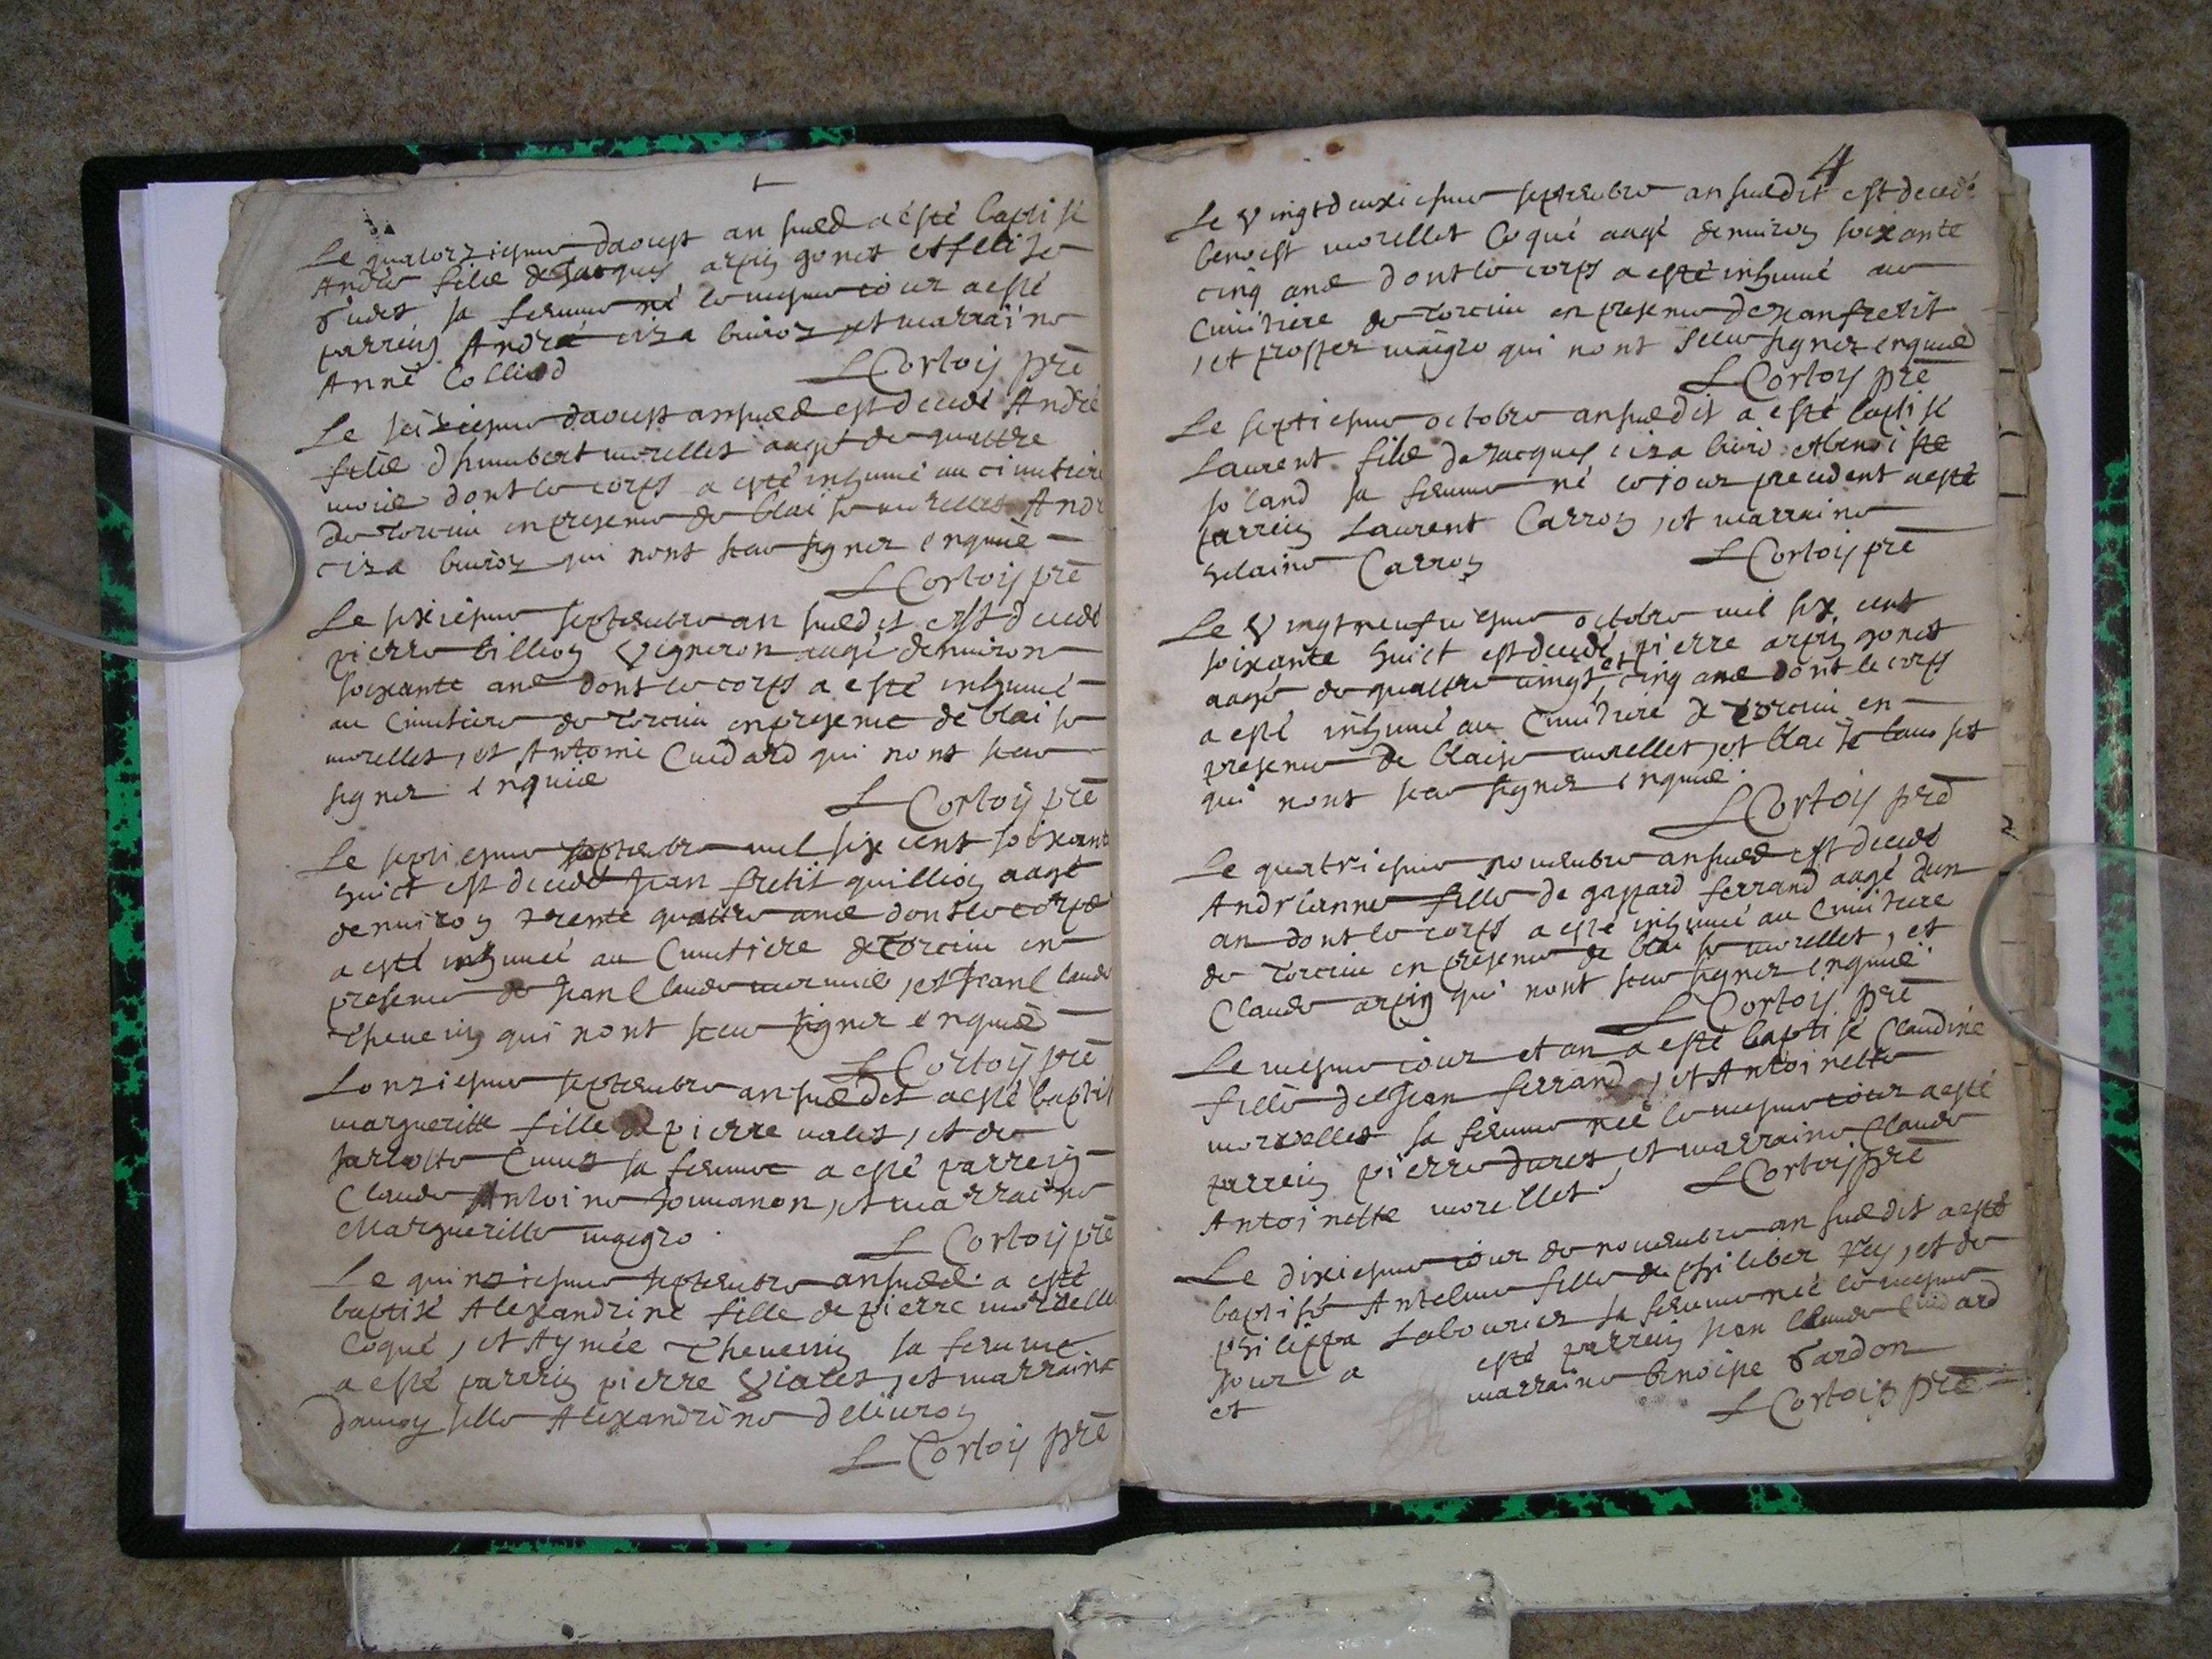 Le quatorziesme daoust an susd a esté baptisé
André filz de Jacques arpin gonet et felize
sa femme né le mesme jour a esté
parrein André ciza buiron et marraine
Anne Colliod
L Cortois pre
Le seiziesme daoust an susd est decedé André
filz dhumbert morellet aagé de quattre
mois dont le corps a esté inhumé au cimetiere
de Torcieu en presence de blaise morellet André
ciza buiron qui nont sceu signer enquis
L Cortois pre
Le sixiesme septembre an susdit est decedé
pierre billion vigneron aagé denviron
soixante ans dont le corps a esté inhumé
au Cimetiere de Torcieu en presence de blaise
morellet, et Antoine Cuidard qui nont sceu
signer enquis
L Cortois pre
Le septiesme septembre mil six cent soixante
huict est decedé Jean fretit quillion aagé
denviron trente quattre ans dont le corps
a esté inhumé au Cimetiere de Torcieu en
presence de Jean Claude mermié, et Jean Claude
Thevenin qui nont sceu signer enquis
L Cortois pre
Lonziesme septembre an susdit a esté baptisé
margueritte fille de pierre valet, et de
sa femme a esté parrein
Claude Antoine Jomanon, et marraine
Margueritte maigro
L Cortois pre
Le quinziesme septembre an susd a esté
baptisé Alexandrine fille de pierre morellet
Coqué, et Aymée Thevenin sa femme
a esté parrein pierre Violet, et marraine
damoyselle Alexandrine delivron
L Cortois pre
4
Le Vingtdeuxiesme septembre an susdit est decedé
benoist morellet Coqué aagé denviron soixante
cinq ans dont le corps a esté inhumé au
Cimetiere de Torcieu en presence de Jean fretit
, et prosper maigro qui nont sceu signer enquis
L Cortois pre
Le septiesme octobre an susdit a esté baptisé
Laurent filz de Jacques ciza buiro et benoiste
soland sa femme né le jour precedent a esté
parrein Laurent Carron, et marraine
helaine Carron
L Cortois pre
Le Vingtneufviesme octobre mil six cent
soixante huict est decedé pierre arpin gonet
aagé de quattre vingt et cinq ans dont le corps
a esté inhumé au Cimetiere de Torcieu en
presence de blaise morellet, et blaise
qui nont sceu signer enquis
L Cortois pre
Le quatriesme novembre an susd est decedé
Andrianne fille de gaspard ferrand aagé dun
an dont le corps a esté inhumé au Cimetiere
de Torcieu en presence de blaise morellet, et
Claude arpin qui nont sceu signer enquis
L Cortois pre
Le mesme jour et an a esté baptisé Claudine
fille de Jean ferrand, et Antoinette
morellet sa femme née le mesme jour a esté
parrein pierre duret et marraine Claude
Antoinette morellet
L Cortois pre
Le dixiesme jour de novembre an susdit a esté
baptisé Antelme fille de philiber Rey, et de
philippa Labourier sa femme née le mesme
jour a esté parrein Jean Claude Cuidard
et marraine benoiste Vardon
L Cortois pre